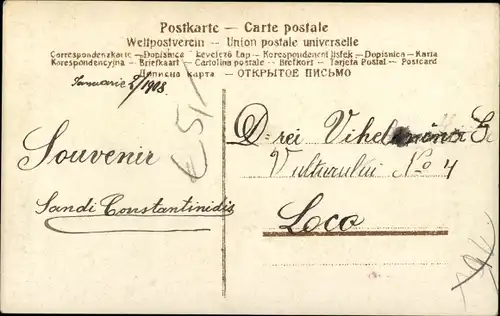 Postkarte – Carte postale
Weltpostverein – Union postale universelle
Correspondenzkarte – Dopisnica – Levelező Lap – Korespondenčni listek – Dopisnica – Karta
Korespondencyjna – Briefkaart – Cartolina postale – Brefkort – Tarjeta Postal – Postcard
Дописна карта – ОТКРЫТОЕ ПИСЬМО
Januarie 2/1903
Souvenir
Sandi Constantinidis
€5,-
D-rei
Vulturului No 4
Loco